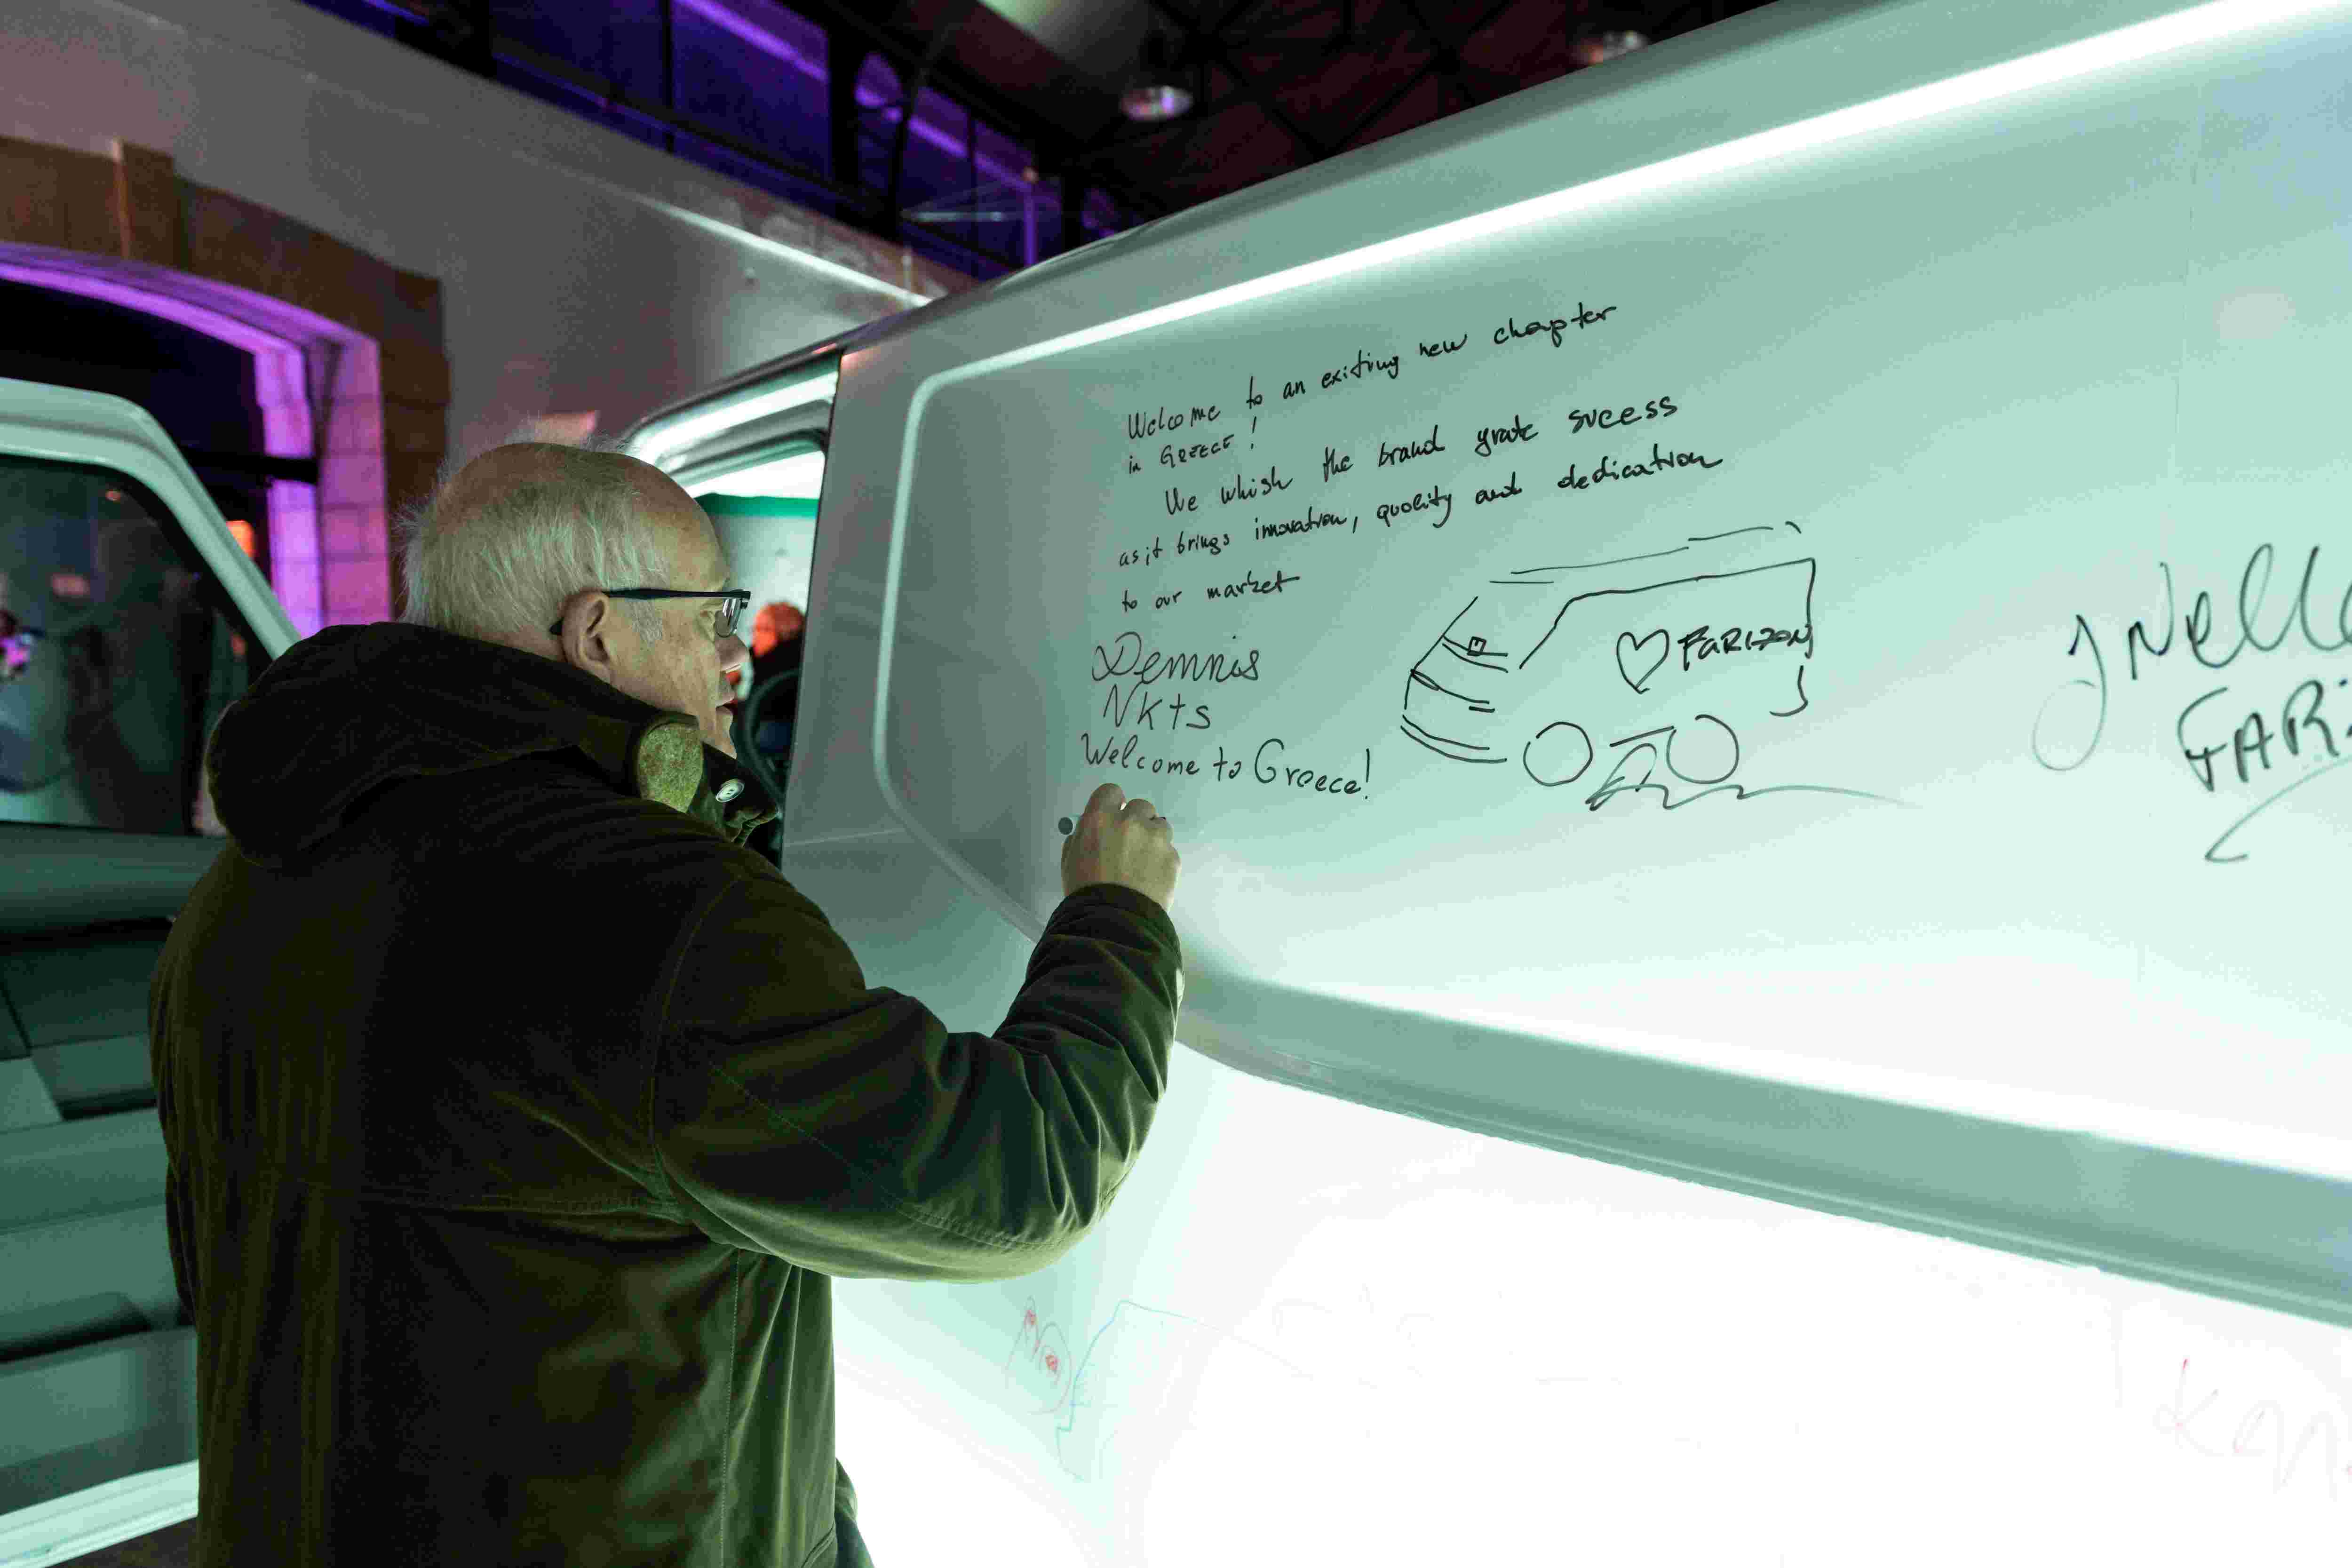 Welcome to an exiting new chapter
in GREECE!
We whish the brand grate sucess
as it brings innovation, quality and dedication
to our market
Demnis
Nkts
Welcome to Greece!
♡ FARIZON